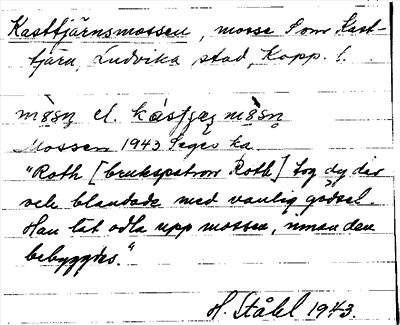 Kasttjärnsmossen, mosse S om Kast-
tjärn, Ludvika stad, Kopp. l.
el.
Mossen 1943
"Roth [brukspatron Roth] tog dy där
och blandade med vanlig gödsel.
Han lät odla upp mossen, innan den
bebyggdes."
H. Ståhl 1943.